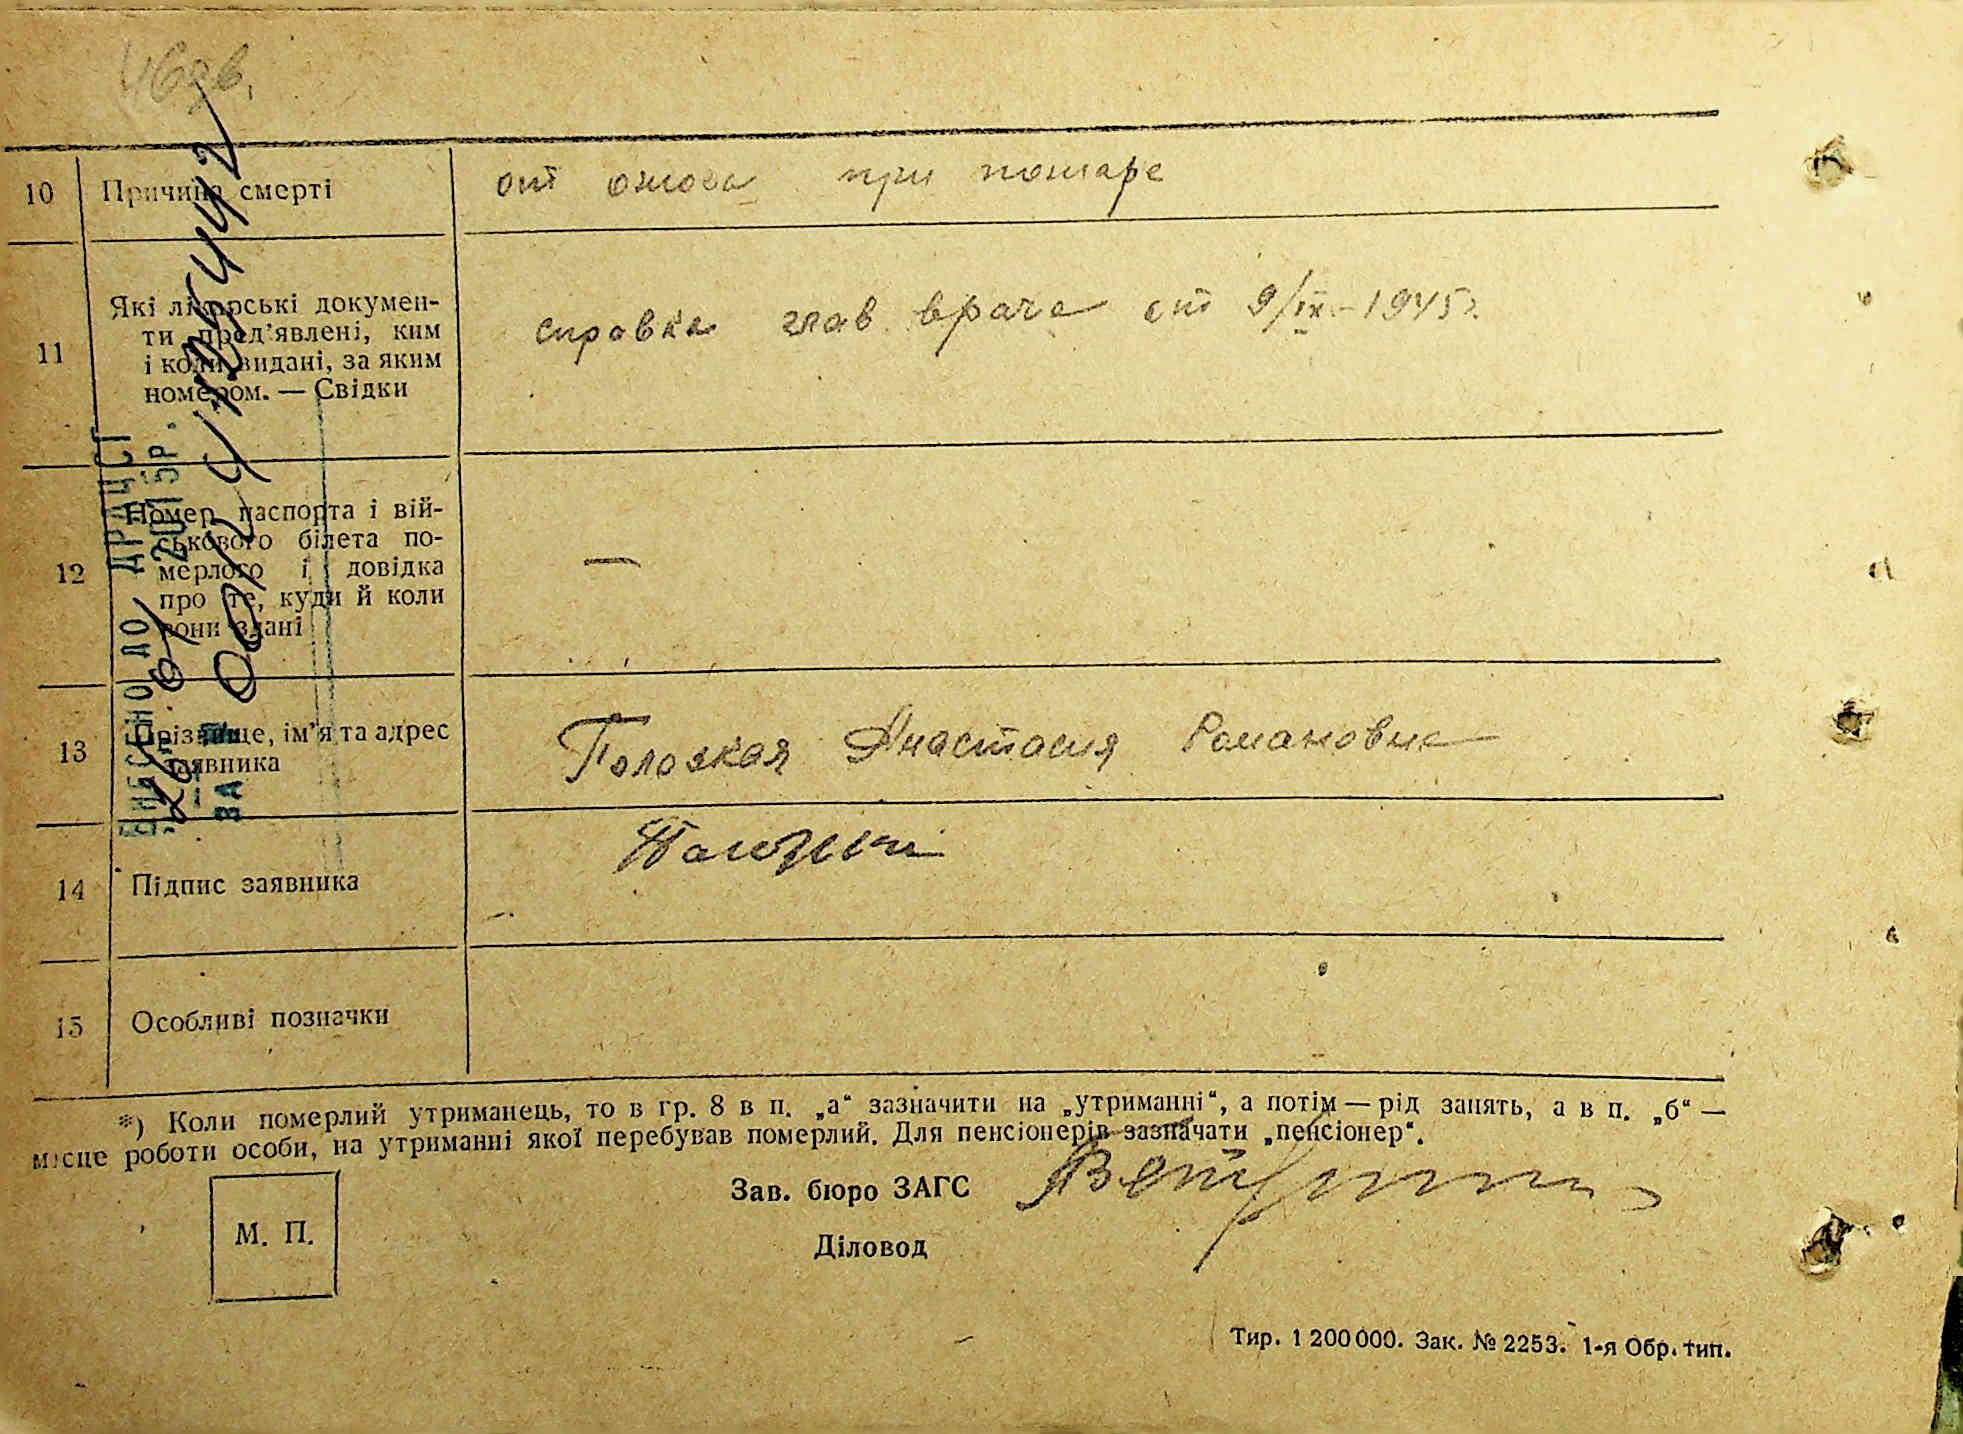 10 Причина смерті
от ожога при пожаре
11 Які лікарські докумен-
ти пред’явлені, ким
і коли видані, за яким
номером. — Свідки
справка глав врача от 9/IX-1945г.
12 Номер паспорта і вій-
ськового білета по-
мерлого і довідка
про те, куди й коли
вони здані
—
13 Прізвище, ім’я та адрес
заявника
Анастасия Романовна
14 Підпис заявника
15 Особливі позначки
ВНЕСЕНО ДО ДРАЦСГ
2015р.
ЗА №
*) Коли померлий утриманець, то в гр. 8 в п. „а“ зазначити на „утриманні“, а потім — рід занять, а в п. „б“ —
місце роботи особи, на утриманні якої перебував померлий. Для пенсіонерів зазначати „пенсіонер“.
Зав. бюро ЗАГС
М. П.
Діловод
Тир. 1 200 000. Зак. № 2253. 1-я Обр. тип.